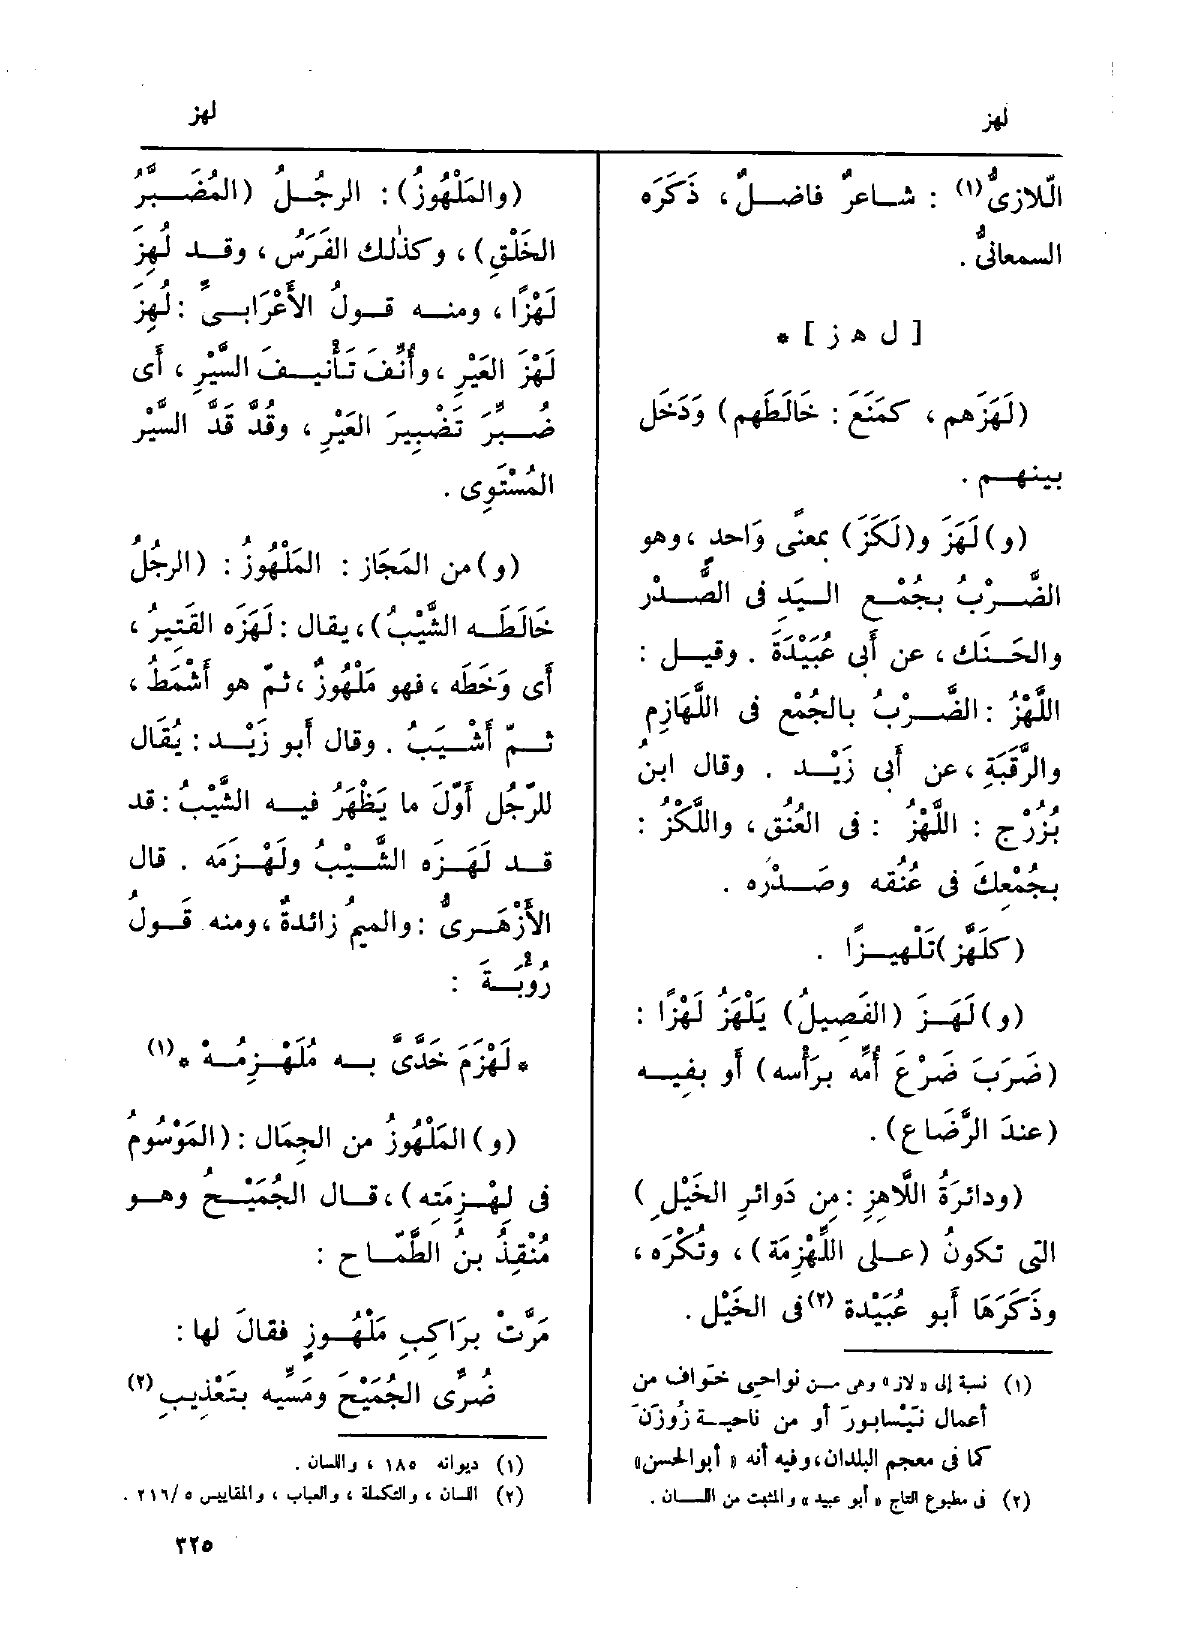 لهز
لهز
الّلازىُّ (١) : شــاعرٌ فاضــلٌ ، ذَكَرَه
السمعانىُّ .
[ ل ھ ز ] *
(لَهَزَهم ، كمَنَعَ : خَالَطَهم) وَدَخَل
بينهــم .
(و) لَهَزَ و(لَكَزَ) بمعنًى وَاحدٍ ، وهو
الضَّــرْبُ بجُمْــع اليَدِ فى الصَّــدْر
والحَــنَك ، عن أَبى عُبَيْدَةَ . وقيــل :
اللَّهْزُ : الضَّــرْبُ بالجُمْع فى اللَّهَازِم
والرَّقَبَةِ ، عن أَبى زَيْــد . وقال ابنُ
بُزُرْج : اللَّهْزُ : فى العُنُق ، واللَّكْزُ :
بجُمْعِكَ فى عُنُقه وصَــدْره .
(كلَهَّز) تَلْهِيــزًا .
(و) لَهَــزَ (الفَصِيلُ) يَلْهَزُ لَهْزًا :
(ضَرَبَ ضَرْعَ أُمِّه برَأْسه) أَو بفِيــه
(عندَ الرَّضَاع) .
(ودائرَةُ اللاَّهِزِ : مِن دَوائرِ الخَيْلِ)
التى تكونُ (عــلى اللِّهْزِمَة) ، وتُكْرَه ،
وذَكَرَهَا أَبو عُبَيْدة (٢) فى الخَيْل .
(١) نسبة إلى « لاز » وهى مــن نواحيى خواف من
أعمال نيَسابورَ أو من ناحيــة زُوزَنَ
كما فى معجم البلدان ، وفيه أنه « أبوالحسن »
(٢) فى مطبوع التاج « أبو عبيد » والمثبت من اللــان .
(والمَلْهُوزُ) : الرجُــلُ (المُضَــبَّرُ
الخَلْقِ) ، وكذٰلك الفَرَسُ ، وقــد لُهِزَ
لَهْزًا ، ومنــه قــولُ الأَعْرَابــىِّ : لُهِزَ
لَهْزَ العَيْرِ ، وأُنِّفَ تَأْنيــفَ السَّيْرِ ، أَى
ضُــبِّرَ تَضْبِيرَ العَيْرِ ، وقُدَّ قَدَّ السَّيْر
المُسْتَوِى .
(و) من المَجَاز : المَلْهُوزُ : (الرجُلُ
خَالَطَــه الشَّيْبُ) ، يقال : لَهَزَه القَتِيرُ ،
أَى وَخَطَه ، فهو مَلْهُوزٌ ، ثمّ هو أَشْمَطُ ،
ثــمّ أَشْــيَبُ . وقال أَبو زَيْــد : يُقَال
للرّجُل أَوّلَ ما يَظْهَرُ فيــه الشَّيْبُ : قد
قــد لَهَــزَه الشَّــيْبُ ولَهْــزَمَه . قال
الأَزْهَــرىُّ : والميمُ زائدةٌ ، ومنه قَــولُ
رُؤْبَــةَ :
* لَهْزَمَ خَدَّىَّ بــه مُلَهْــزِمُــهْ * (١)
(و) المَلْهُوزُ من الجِمَال : (المَوْسُومُ
فى لِهْــزِمَته) ، قــال الجُمَيْــحُ وهــو
مُنْقِذُ بنُ الطَّمّــاح :
مَرَّتْ برَاكبِ مَلْهُــوزٍ فقالَ لها :
ضُرِّى الجُمَيْحَ ومَسِّيه بتَعْذِيبِ (٢)
(١) ديوانه ١٨٥ ، واللسان .
(٢) اللسان ، والتكملة ، والعباب ، والمقاييس ٥ /٢١٦ .
٣٢٥